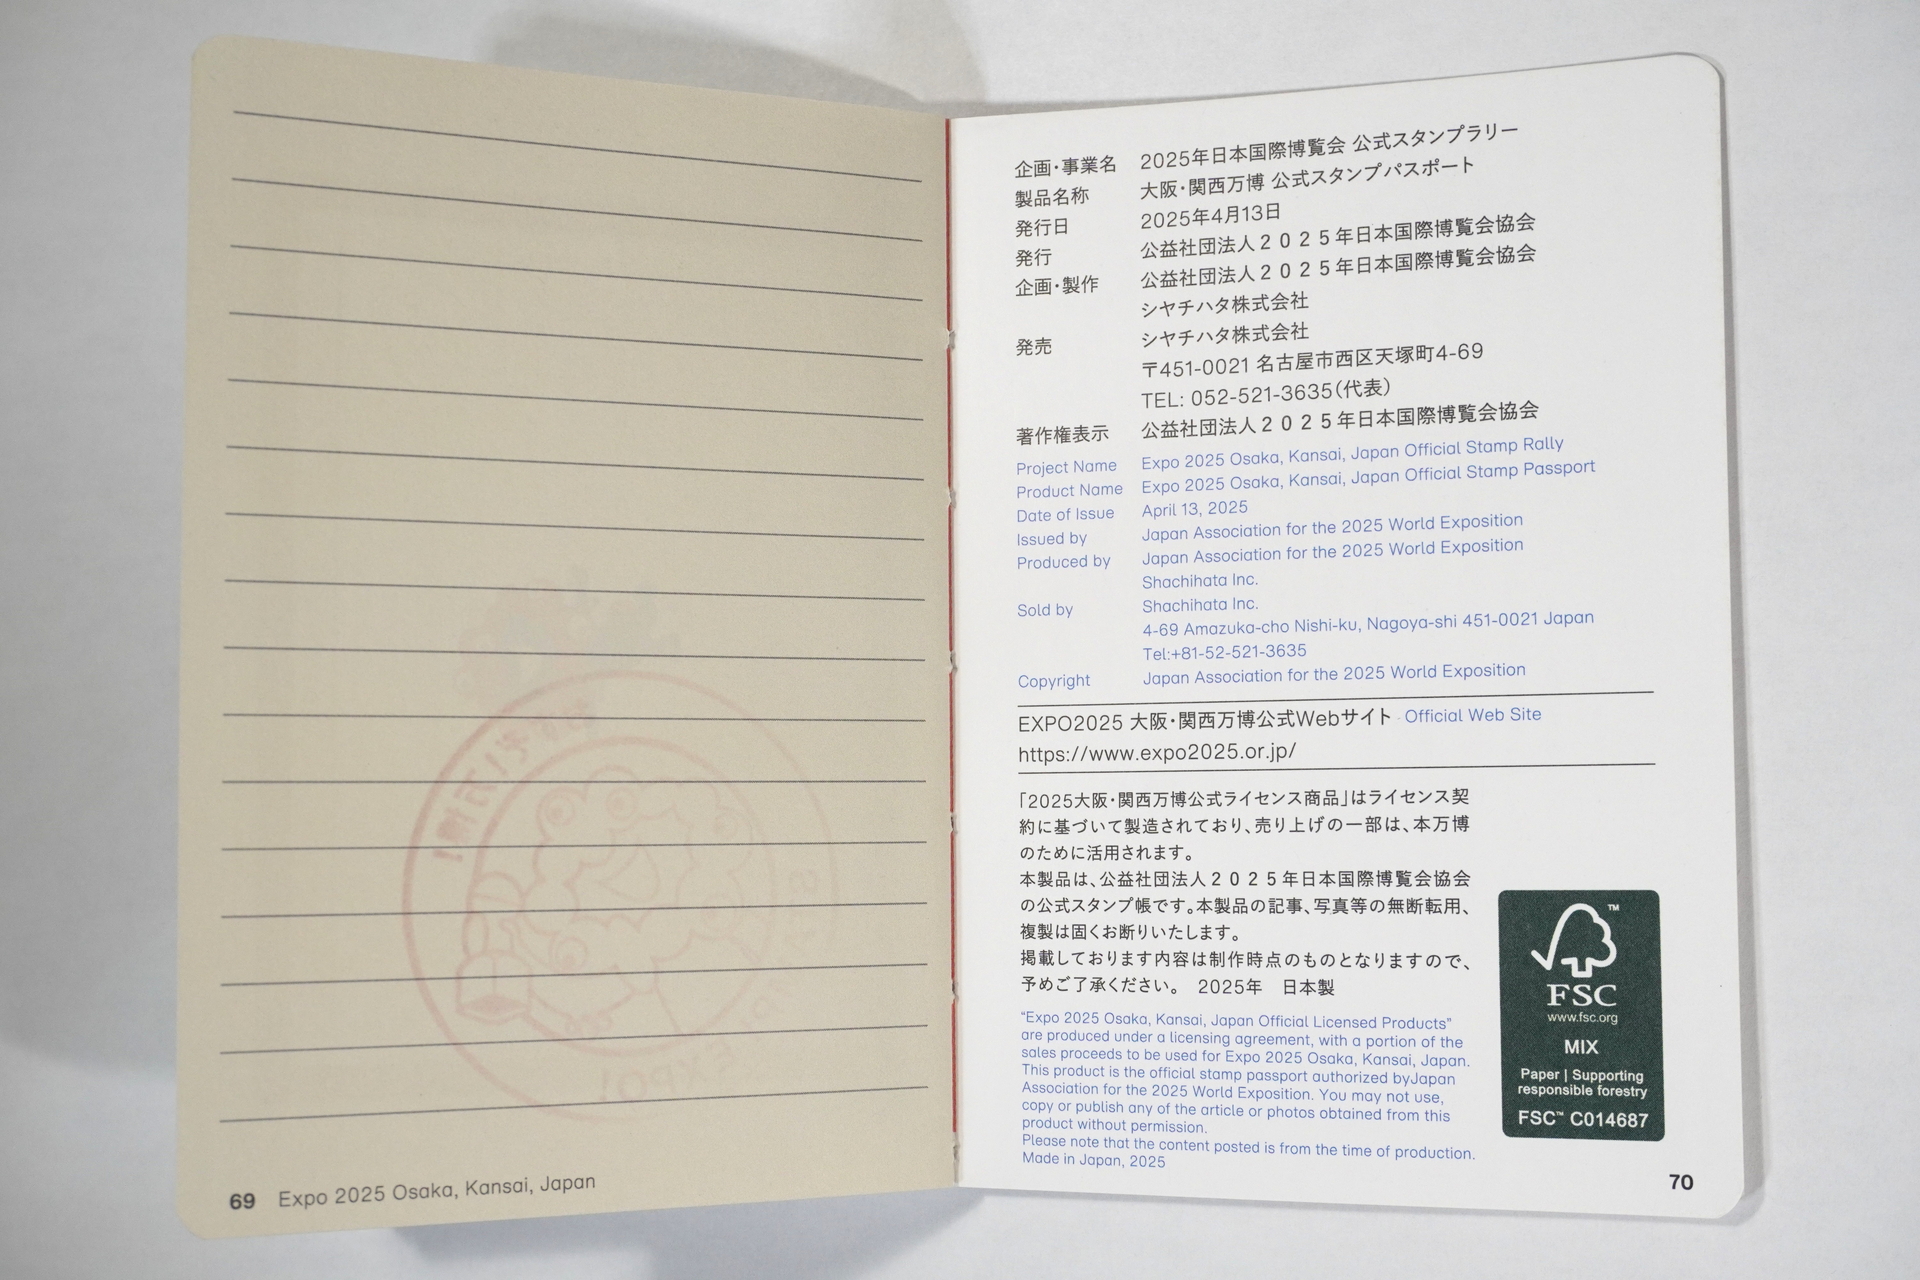 69 Expo 2025 Osaka, Kansai, Japan
企画・事業名 2025年日本国際博覧会 公式スタンプラリー
製品名称 大阪・関西万博 公式スタンプパスポート
発行日 2025年4月13日
発行 公益社団法人２０２５年日本国際博覧会協会
企画・製作 公益社団法人２０２５年日本国際博覧会協会
シヤチハタ株式会社
発売 シヤチハタ株式会社
〒451-0021 名古屋市西区天塚町4-69
TEL: 052-521-3635（代表）
著作権表示 公益社団法人２０２５年日本国際博覧会協会
Project Name Expo 2025 Osaka, Kansai, Japan Official Stamp Rally
Product Name Expo 2025 Osaka, Kansai, Japan Official Stamp Passport
Date of Issue April 13, 2025
Issued by Japan Association for the 2025 World Exposition
Produced by Japan Association for the 2025 World Exposition
Shachihata Inc.
Sold by Shachihata Inc.
4-69 Amazuka-cho Nishi-ku, Nagoya-shi 451-0021 Japan
Tel:+81-52-521-3635
Copyright Japan Association for the 2025 World Exposition
EXPO2025 大阪・関西万博公式Webサイト Official Web Site
https://www.expo2025.or.jp/
「2025大阪・関西万博公式ライセンス商品」はライセンス契
約に基づいて製造されており、売り上げの一部は、本万博
のために活用されます。
本製品は、公益社団法人２０２５年日本国際博覧会協会
の公式スタンプ帳です。本製品の記事、写真等の無断転用、
複製は固くお断りいたします。
掲載しております内容は制作時点のものとなりますので、
予めご了承ください。 2025年 日本製
“Expo 2025 Osaka, Kansai, Japan Official Licensed Products”
are produced under a licensing agreement, with a portion of the
sales proceeds to be used for Expo 2025 Osaka, Kansai, Japan.
This product is the official stamp passport authorized byJapan
Association for the 2025 World Exposition. You may not use,
copy or publish any of the article or photos obtained from this
product without permission.
Please note that the content posted is from the time of production.
Made in Japan, 2025
™
FSC
www.fsc.org
MIX
Paper | Supporting
responsible forestry
FSC™ C014687
70